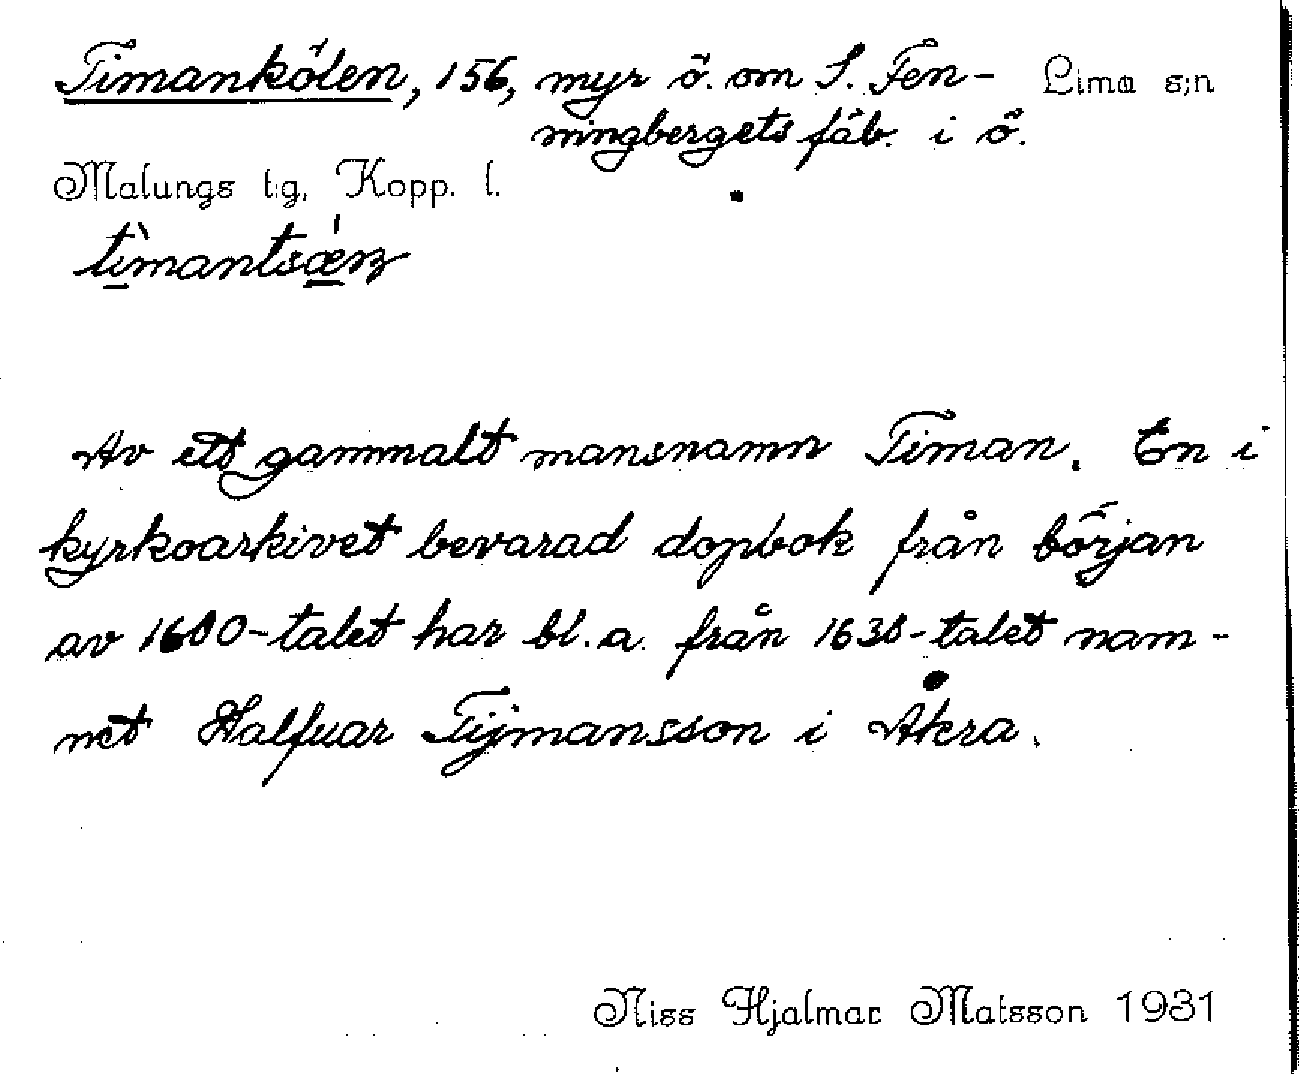 Timankölen, 156, myr ö. om S. Fen- Lima s;n
ningbergets fäb. i ö.
Malungs t:g, Kopp. l.
tìmantsǽn
Av ett gammalt mansnamn Timan. En i
kyrkoarkivet bevarad dopbok från början
av 1600-talet har bl. a. från 1630-talet nam-
net Halfuar Tijmansson i Åkra.
Niss Hjalmar Matsson 1931